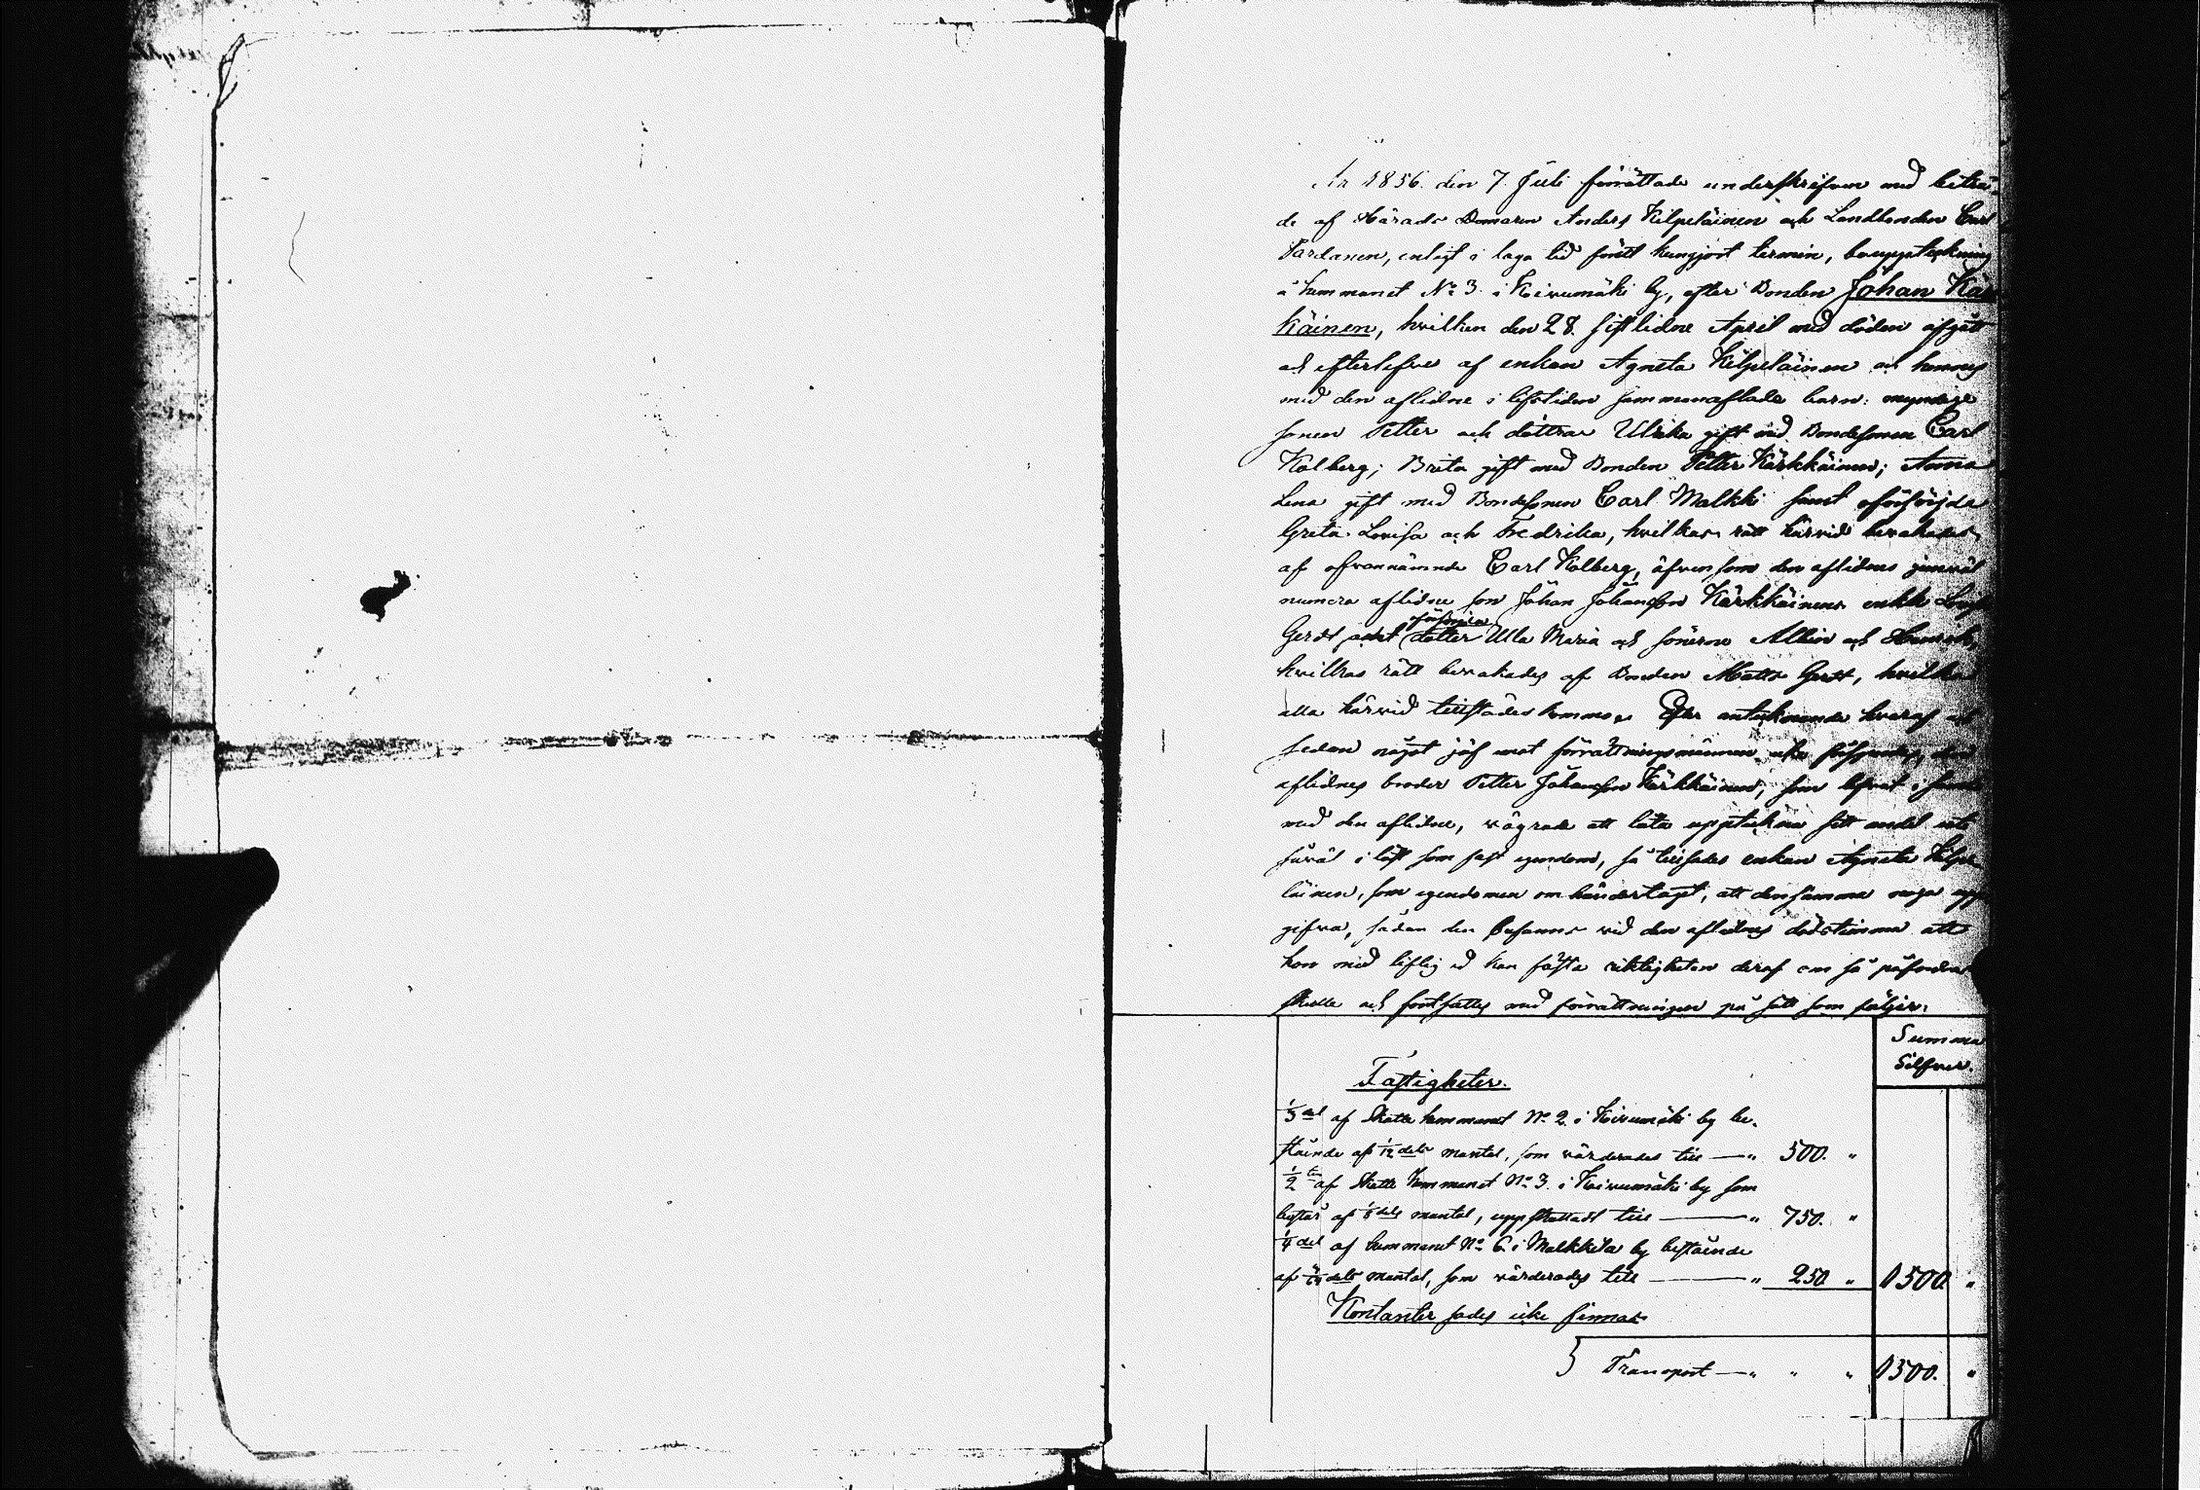 År 1856. den 7. Juli förrättade underskrifven med biträ-
de af Härads Domaren Anders Kilpeläinen och Landbonden Carl
Pardanen, enligt i laga tid förut kungjort termin, bouppteckning
å hemmanet No 3. i Koivumäki by, efter Bonden Johan Kär-
käinen, hvilken den 28. sistlidne April med döden afgått
och efterlefves af enkan Agneta Kilpeläinen och hennes
med den aflidne i lifstiden sammanaflade barn: myndige
sonen Petter och döttrar Ulrika gift med Bondesonen Carl
Kolberg; Brita gift med Bonden Petter Kärkkäinen; Anna
Lena gift med Bondesonen Carl Malkki samt oförsöjda
Greta Lovisa och Fredrika, hvilkas rätt härvid bevakades
af ofvannämnde Carl Kolberg, äfvensom den aflidnes
numera aflidne son Johan Johansson Kärkkäinens enka
Gerdt samt dotter Ulla Maria och sönerne Albin och
hvilkas rätt bevakades af Bonden Matts Gerdt, hvilka
alla härvid tillstädeskommo. Efter antecknande häraf och
sedan något jäf emot förrättningsmännen icke försportes, den
aflidnes broder Petter Johansson Kärkkäinen, som lefvat i
med den aflidne, vägrade att låta uppteckna sitt andel
såväl i löst som fast egendom, så tillsades enkan Agneta Kilpe
läinen, som egendomen om händertagit, att densamma noga upp
gifva, sådan den befanns vid den aflidnes dödstimma att
hon med liflig ed kan fästa riktigheten deraf om så påfordras
skulle och fortsattes med förrättningen på sätt som följer:
Summa
Silfver.
Fastigheter.
1/3 del af Skatte hemmanet No 2. i Koivumäki by be-
stående af 1/12 dels mantal, som värderades till — " 500. "
1/2 af Skatte hemmanet No 3. i Koivumäki by som
består af 1/8 dels mantal, uppskattadt till — " 750. "
1/4 del af hemmanet No 6. i Malkkila by bestående
af dels mantal, som värderades till — " 250 " 1500. "
Kontanter sades icke finnas
Transport — " " " 1500. "